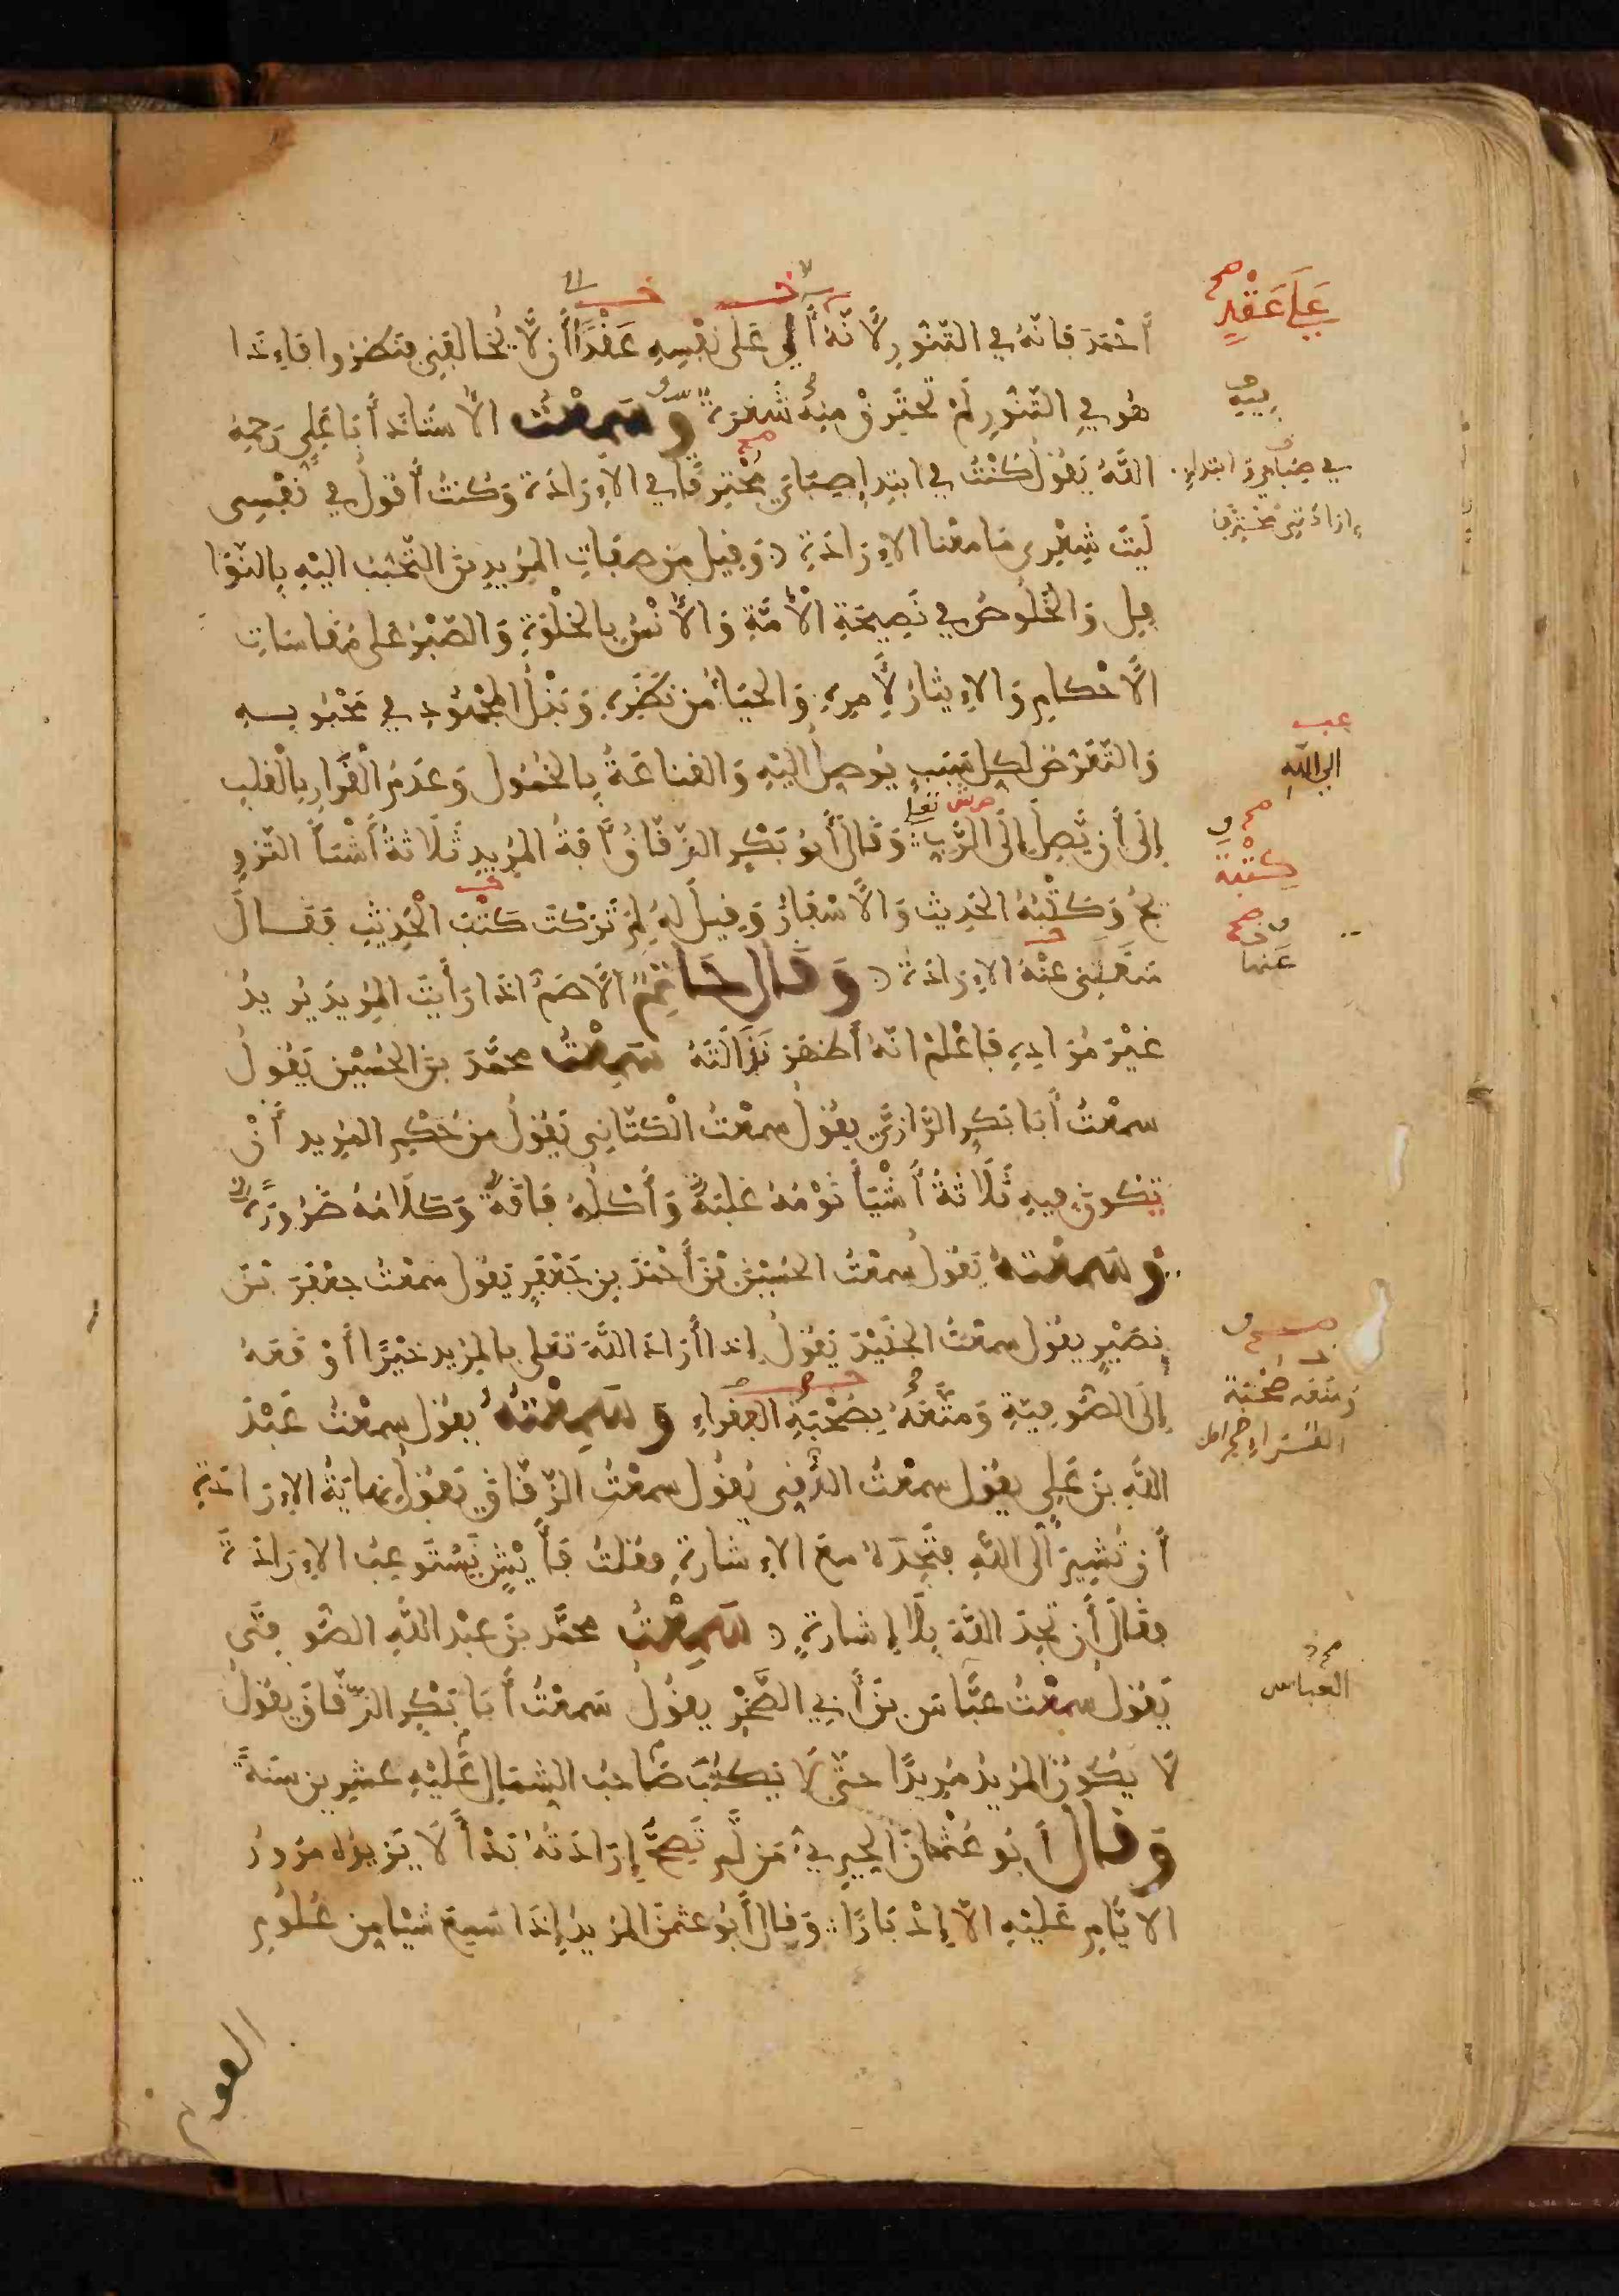 أَحْمَدَ فإنّهُ في التَّنُّورِ لأنّهُ أَلى عَلى نَفْسِهِ عَقْدًا أن لا يُخالفني فنظروا فإذا
هُو في التَّنُّورِ لَمْ تحترِقْ منهُ شَعرَة وسَمِعْتُ الأستاذَ أبا عَلي رَحِمَهُ
اللهُ يَقُولُ كُنْتُ في ابتداء صِبَاي مُحْتَرِقًا في الإرادة وكنتُ أقولُ في نَفْسِى
لَيْتَ شِعْرِى مَا مَعْنا الإرَادةِ وَقيل من صِفاتِ المُرِيدِينَ التَّحَبُّبُ إليْهِ بِالنّوَا
فِل وَالخُلُوصُ في نَصِيحَةِ الأُمَّةِ وَالأُنْسُ بالخلْوَةِ وَالصَّبْرُ عَلى مُقاسَاتِ
الأحْكامِ وَالإيثارُ لأمرِهِ وَالحَيَاءُ من نَظَرِهِ وَبَذْلُ المَجْهُودِ في مَحْبُوبِهِ
وَالتَّعَرُّضُ لكلِ سَبَبٍ يُوصِلُ إليْهِ وَالقناعَةُ بِالخُمُول وَعَدَمُ القَرَارِ بِالْقلبِ
إلَى أن يَّصِلَ إلَى الرَّبِّ وَقالَ أبُو بَكْرٍ الزّقّاقُ آفةُ المُرِيدِ ثَلاثةُ أشْيَا التّزو
يجُ وَكَتْبُهُ الحَدِيث وَالأسْفارُ وَقيلَ لهُ لِمَ تَرَكْتَ كَتْبَ الْحَدِيثِ فقال
مَنَعَتْنِى عنْهُ الإرَادَة وَقَال حَاتِمٌ الأصَمُّ اذا رَأيتَ المُرِيدَ يُرِيدُ
غيْرَ مُرَادِهِ فاعْلَمْ انّهُ أظهَرَ نَذَالَتَهُ سَمِعْتُ محمَّدَ بنَ الحُسَيْن يَقُولُ
سمعْتُ أبا بَكرٍ الرَّازيَّ يقُولُ سمعْتُ الْكتّانِي يَقُولُ من حُكْمِ المُرِيد أنْ
يّكونَ فيهِ ثَلاثةُ أشْيَا نَوْمُهُ غلبَةٌ وَأكْلُهُ فاقَةٌ وَكَلامُهُ ضَرُورَةٌ
وسَمِعْتهُ يَقُولُ سمعْتُ الحُسَيْنَ بْنَ أحْمَدَ بنِ جَعْفَرٍ يَقُول سَمْعْتُ جعْفَرَ بْنَ
نصَيْرٍ يقُولُ سمعتُ الجُنَيْدَ يَقُولُ إذا أرَادَ اللَّهُ تعَلى بالمُرِيد خيْرًا أوْقعَهُ
إلَى الصُّوفيّةِ وَمَنَعَهُ بصُحْبَةِ الفقراءِ وسَمِعْتُهُ يقُول سمعْتُ عَبْدَ
اللَّهِ بنَ عَلي يقُول سمعْتُ الدُّقي يَقُولُ سمعْتُ الزّقّاقَ يَقُولُ نِهَايَةُ الإرَادَةِ
أن تُشِيرَ إلى اللَّهِ فتَجِدَهُ معَ الإشارةِ فقُلتُ فأيْشٍ يَّسْتَوعِبُ الإرَادةَ
فقالَ أن تَجِدَ اللَّهَ بِلا إشارةٍ سَمِعْتُ محمَّد بنَ عبْد اللَّهِ الصُّوفي
يَقُولُ سمعْتُ عَبَّاسَ بنَ أبي الصَّخْرِ يقُولُ سَمعْتُ أبَا بَكْرٍ الزّقّاقَ يقُولُ
لا يَكُونُ المُرِيدُ مُرِيدًا حَتَّى لا يَكتُبَ صَاحبُ الشمَالِ عَليْهِ عشرِين سَنَةً
وَقال أبُو عُثمَانَ الحِيرِيُّ مَن لَّم تَصِحَّ إرَادَتُهُ بَدْأً لا يَزِيدُه مرُورُ
الأيّامِ عَليْهِ إلا إدْبَارًا وَقالَ أبُو عثمن المُرِيدُ إذا سَمِعَ شيْا مِن عُلُومِ
عَلَى عَقْدٍ صح
فِيهِ
في صَباي وَابتداءِ
إرادَتي محترِقا
إلى اللهِ
صح
كَتْبَة
عَنها
صح
وَمَنَعَه صُحْبَة
القُرّاءِ
العباس